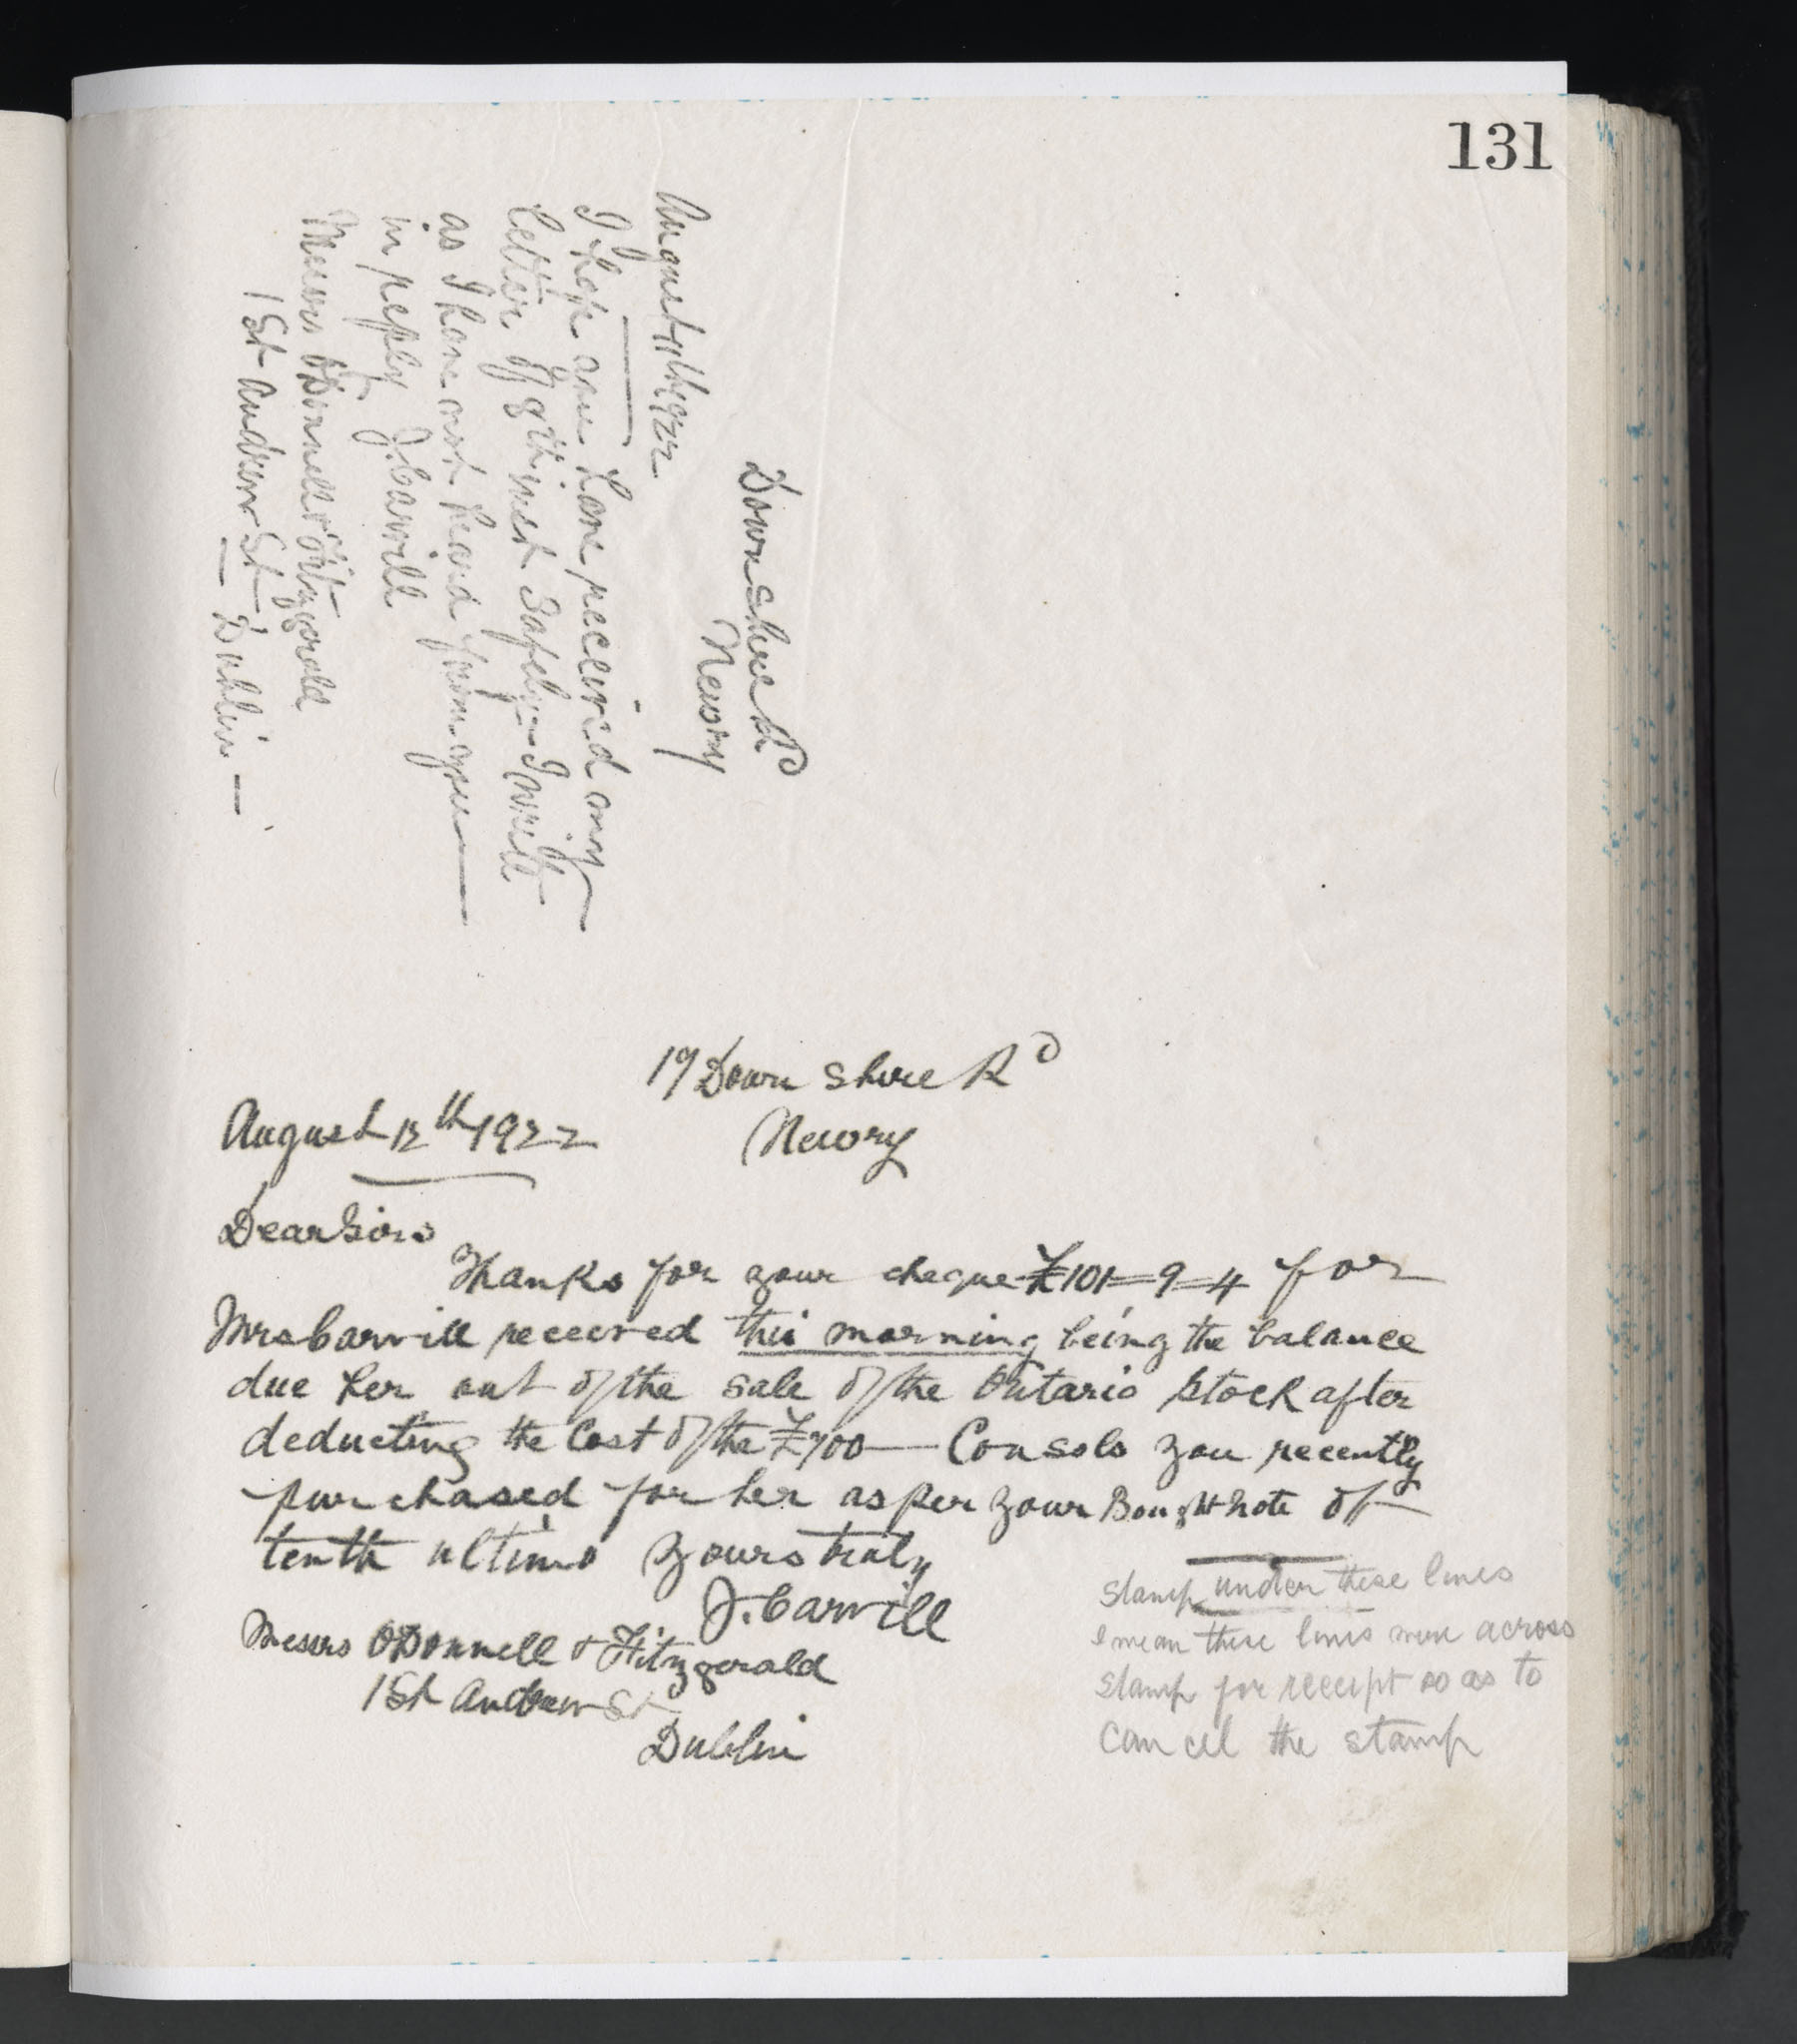 131
Downshire Rd
Newry
August 11th 1922
I hope you have received my
letter of 8th inst safely - I write
as I have not heard from you —
in reply J. Carvill
Messrs O'Donnell & Fitzgerald
1 St Andrew St — Dublin —
19 Down shire Rd
August 12th 1922 Newry
Dear Sirs
Thanks for your cheque £101=9=4 for
Mrs Carvill received this morning being the balance
due her out of the sale of the Ontario Stock after
deducting the Cost of the £700 — Consols you recently
purchased for her as per your Bought note of
tenth ultimo yours truly
J. Carvill
Messrs O'Donnell & Fitzgerald
1 St Andrew St
Dublin
Stamp under these lines
I mean these lines were across
stamp for receipt so as to
cancel the stamp